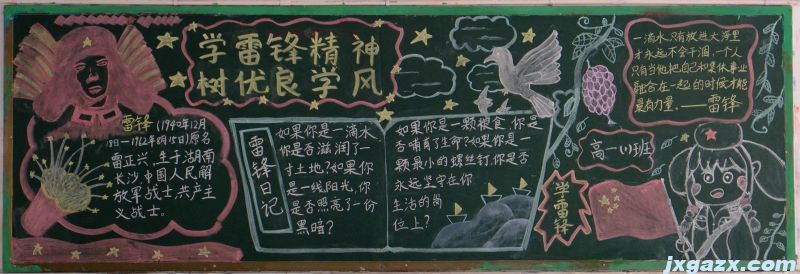 学雷锋精神
树优良学风
雷锋(1940年12月
18日-1962年8月15日)原名
雷正兴,生于湖南
长沙,中国人民解
放军战士共产主
义战士。
雷锋日记
如果你是一滴水
你是否滋润了一
寸土地?如果你
是一线阳光,你
是否照亮了一份
黑暗?
如果你是一颗粮食,你是
否哺育了生命?如果你是一
颗最小的螺丝钉,你是否
永远坚守在你
生活的岗
位上?
一滴水只有放进大海里
才永远不会干涸,一个人
只有当他把自己和集体事业
融合在一起的时候才能
最有力量。——雷锋
高一(1)班
学雷锋
jxgazx.com